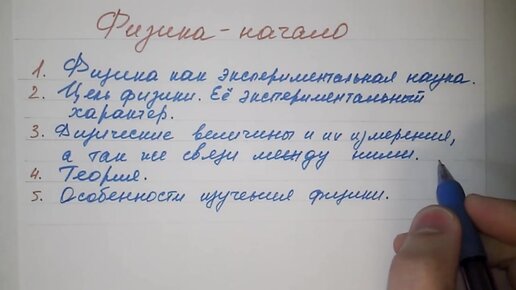 Физика - начало
1. Физика как экспериментальная наука.
2. Цель физики. Её экспериментальный
характер.
3. Физические величины и их измерения,
а так же связи между ними.
4. Теория.
5. Особенности изучения физики.